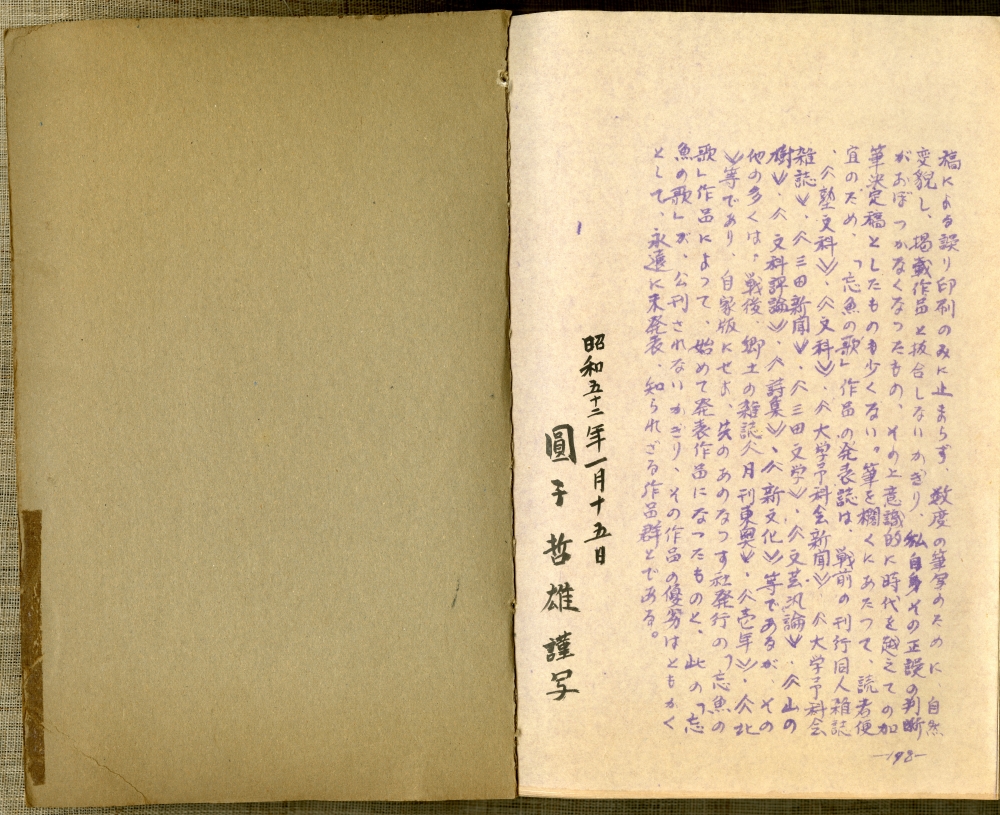 稿による誤り印刷のみに止まらず、数度の筆写のために自然
変貌し、掲載作品と校合しないかぎり、私自身その正誤の判断
がおぼつかなくなつたもの、その上意識的に時代を越えての加
筆決定稿としたものも少くない。筆を擱くにあたつて、読者便
宜のため、「忘魚の歌」作品の発表誌は、戦前の刊行同人雑誌
、≪塾文科≫、≪文科≫、≪大学予科会新聞≫≪大学予科会
雑誌≫、≪三田新聞≫、≪三田文学≫、≪文芸汎論≫、≪山の
樹≫、≪文科評論≫、≪詩集≫、≪新文化≫等であるが、その
他の多くは、戦後、郷土の雑誌≪月刊東奥≫、≪壱年≫、≪北
≫等であり、自家版にせよ、先のあのなつす社発行の「忘魚の
歌」作品によつて、始めて発表作品になつたものと、此の「忘
魚の歌」が、公刊されないかぎり、その作品の優劣はともかく
として、永遠に未発表、知られざる作品群とである。
昭和五十二年一月十五日
圓子哲雄 謹写
—198—